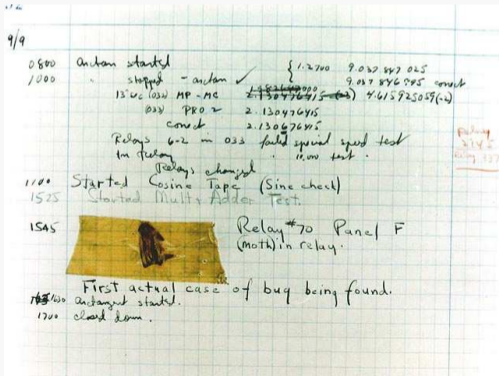 9/9
0800 Antan started
1000 " stopped - antan ✓ { 1.2700 9.037 847 025
9.037 846 995 correct
13"uc (032) MP - MC 2.130476415 (-3) 4.615925059(-2)
(033) PRO 2 2.130476415
correct 2.130676415
Relays 6-2 in 033 failed special speed test
in relay " 10,000 test .
Relays changed
Relay
2145
1100 Started Cosine Tape (Sine check)
1525 Started Mult + Adder Test.
1545 Relay #70 Panel F
(moth) in relay.
First actual case of bug being found.
1630 antangent started.
1700 closed down.